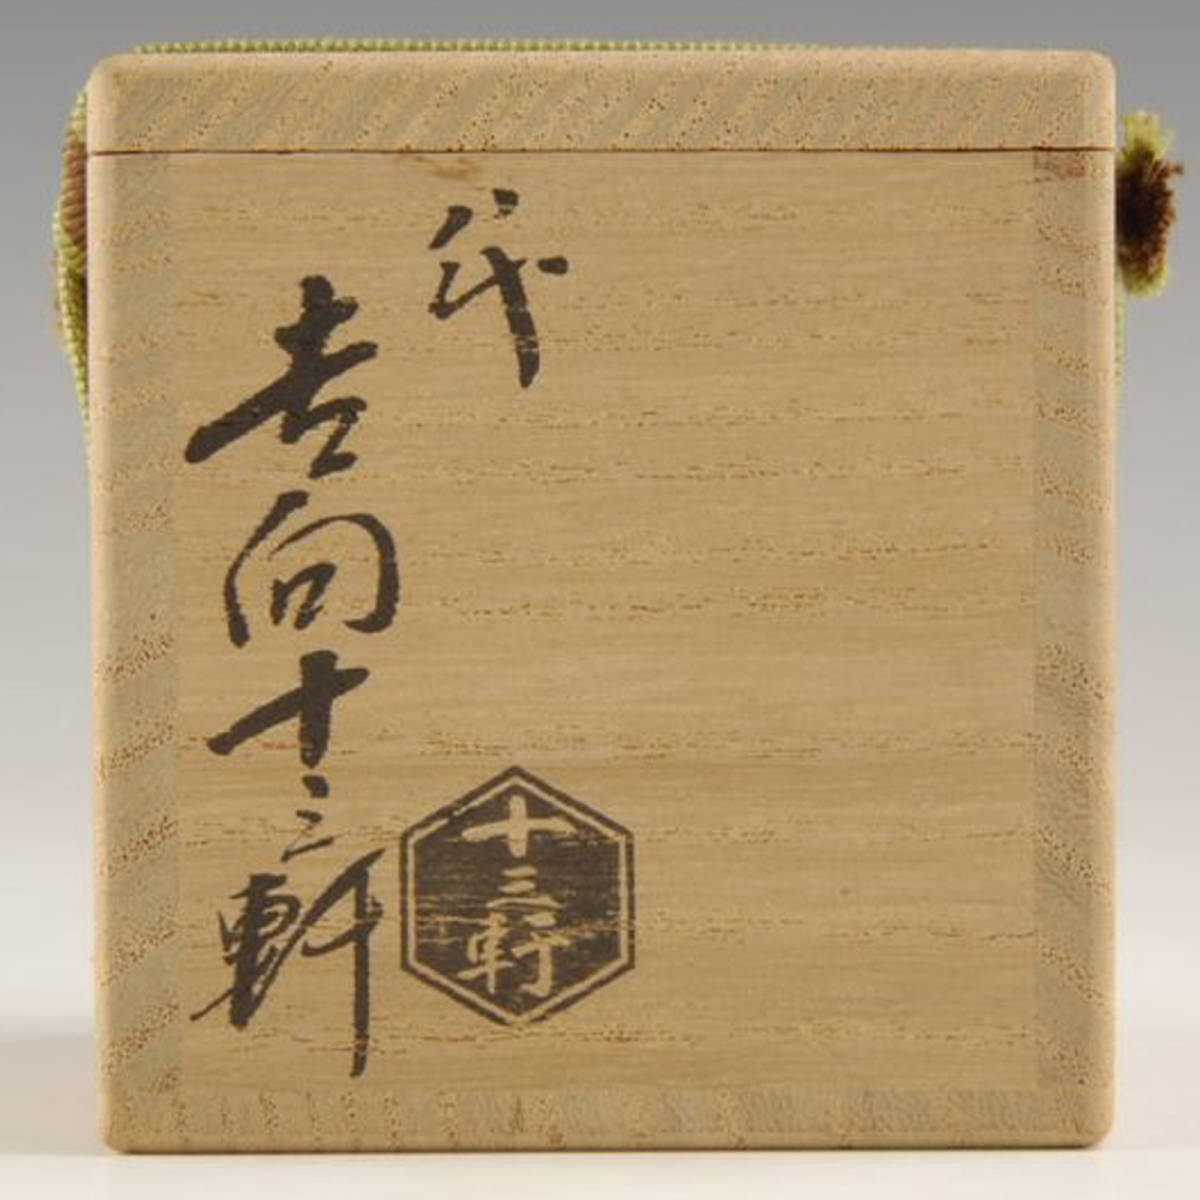 八代
吉向十三軒
十三軒